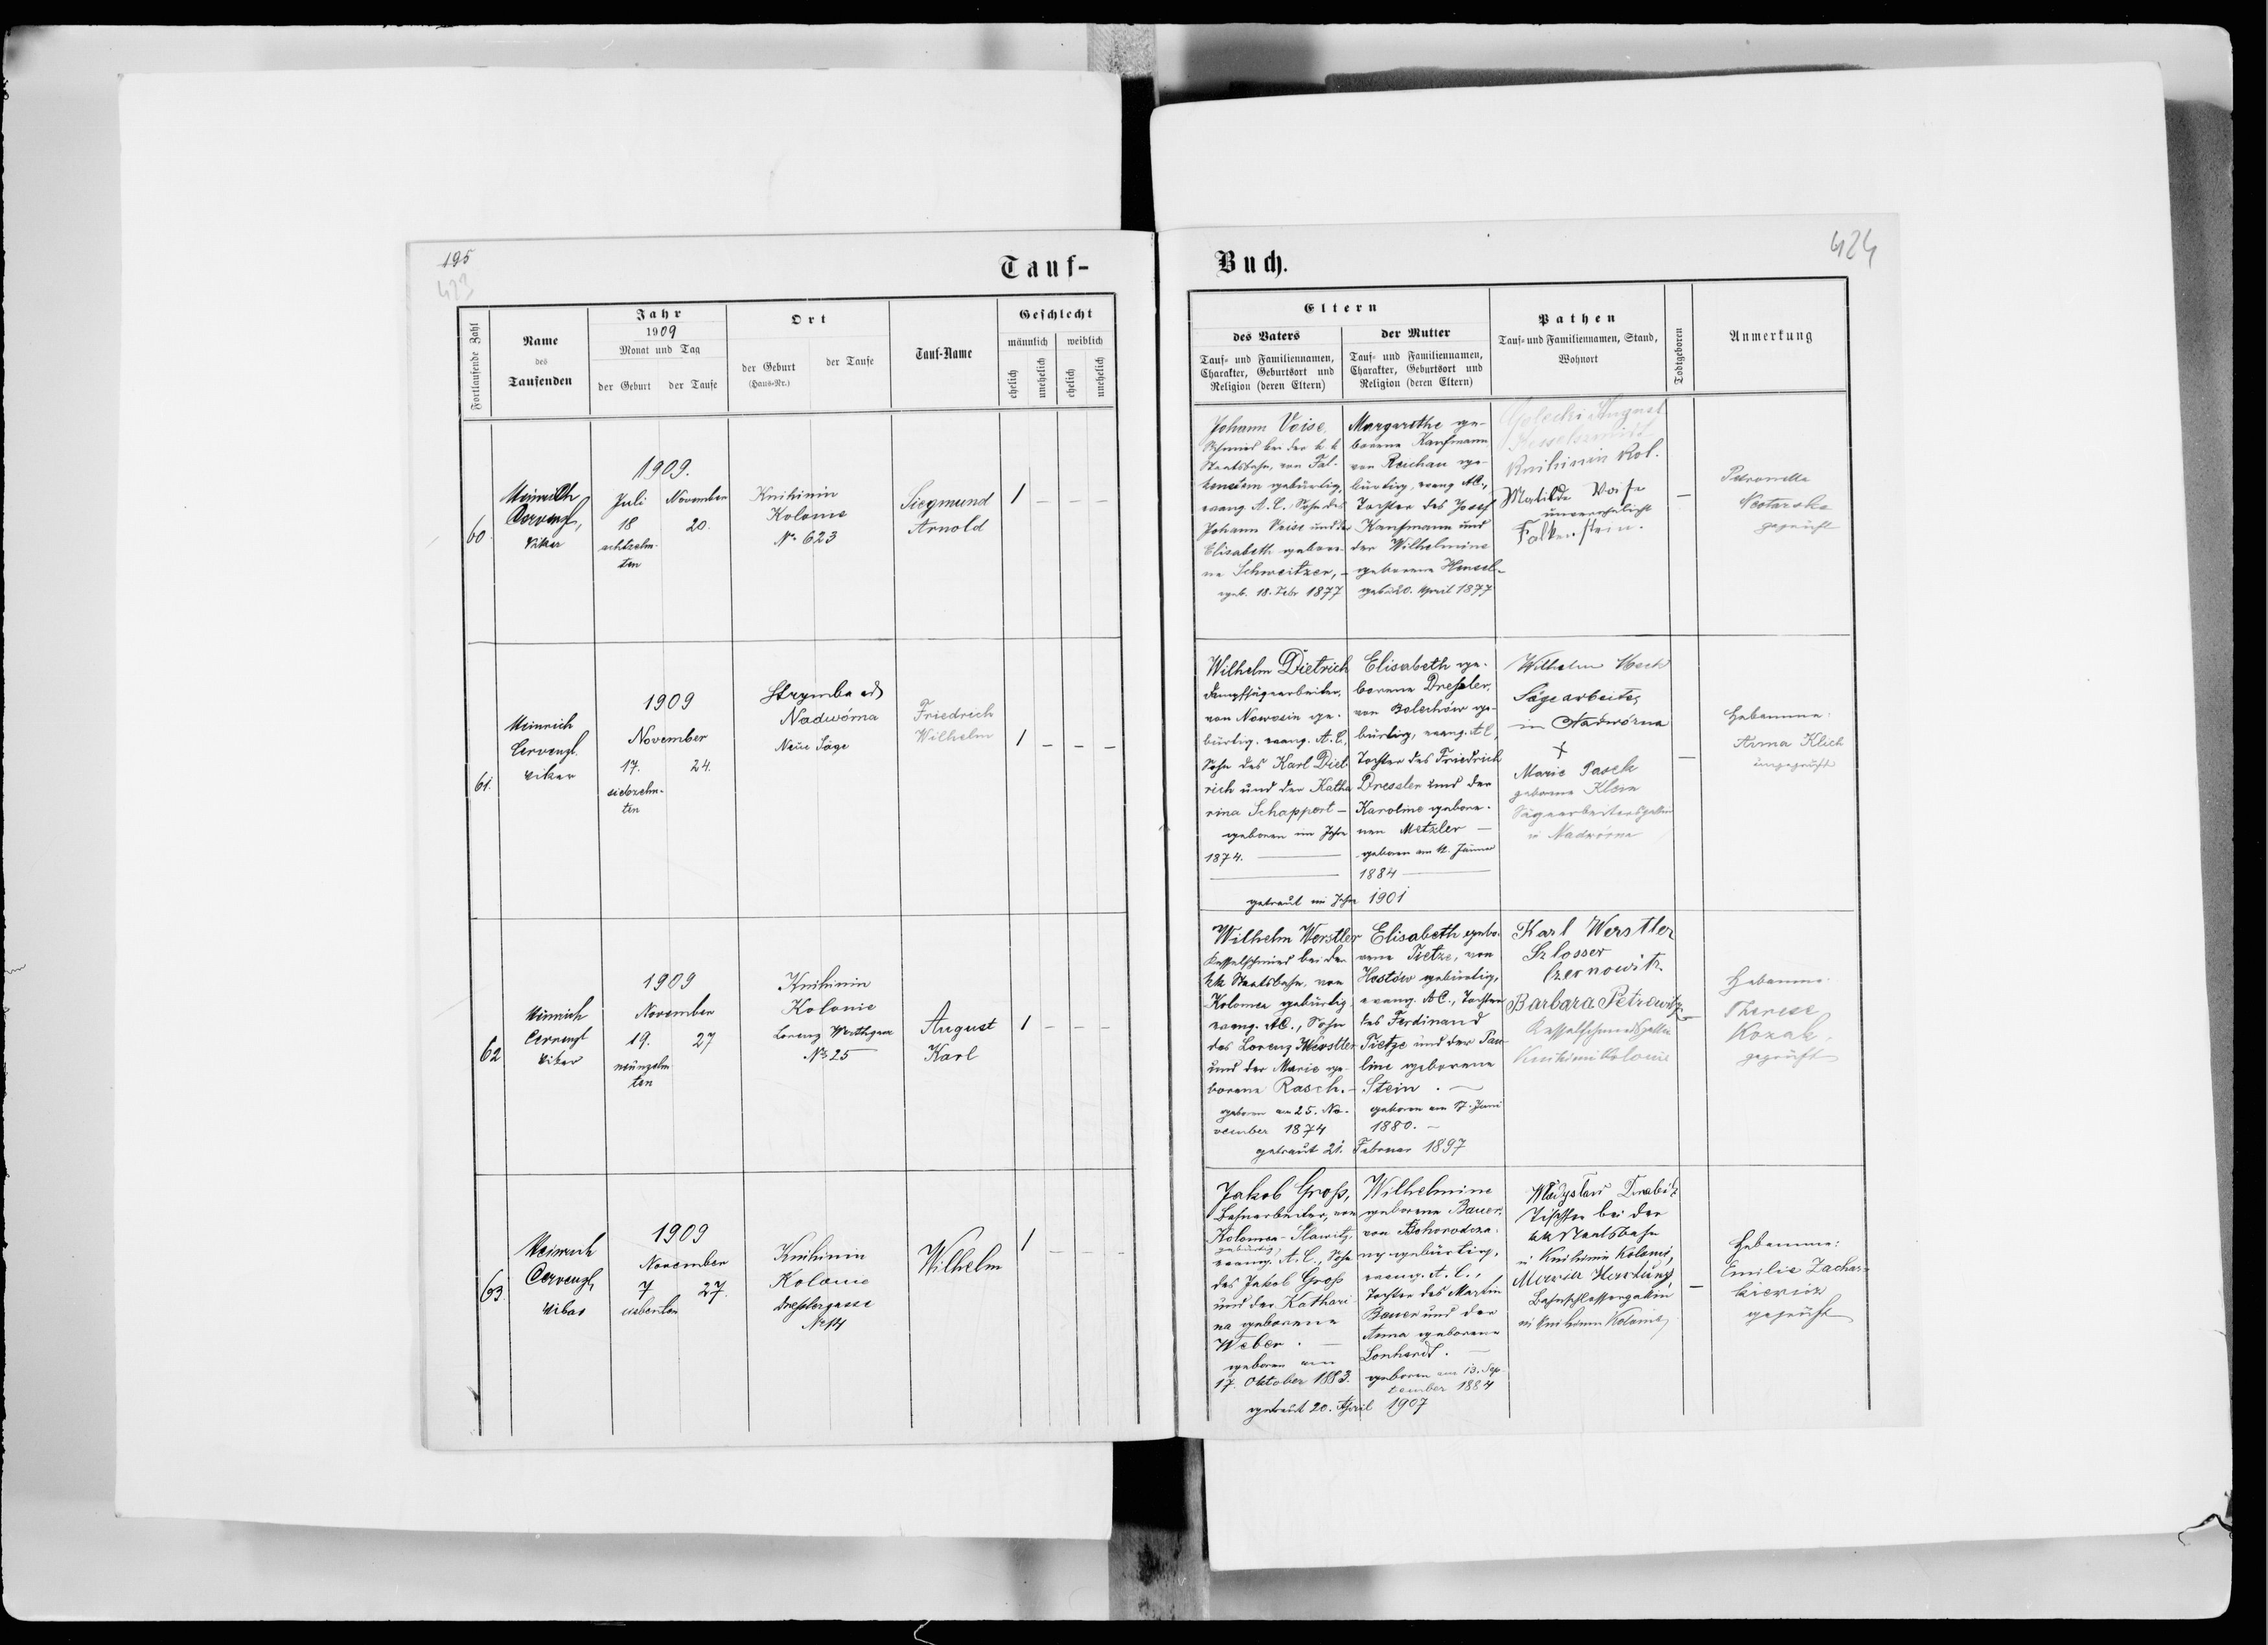 195
423
Tauf-
Fortlaufende Zahl
Name
des
Taufenden
Jahr
1909
Monat und Tag
der Geburt
der Taufe
Ort
der Geburt
(Haus-Nr.)
der Taufe
Tauf-Name
Geschlecht
männlich
weiblich
ehelich
unehelich
ehelich
unehelich
60.
Heinrich
Cervengl,
Vikar
1909.
Juli November
18 20.
achtzehn-
ten
Knihinin
Kolonie
No. 623
Siegmund
Arnold
1 – – –
61.
Heinrich
Cervengl.
Vikar
1909
November
17. 24.
siebzehn-
ten
Strymba ad
Nadwórna
Neue Säge
Friedrich
Wilhelm
1 – – –
62
Heinrich
Cervengl
Vikar
1909
November
19. 27
neunzehn
ten
Knihinin
Kolonie
No 25
August
Karl
1 – – –
63.
Heinrich
Cervengl,
Vikar
1909
November
7 27.
siebenten
Knihinin
Kolonie
Dresslergasse
No 14
Wilhelm
1 – – –
Buch.
424
Eltern
des Vaters
Tauf- und Familiennamen,
Charakter, Geburtsort und
Religion (deren Eltern)
der Mutter
Tauf- und Familiennamen,
Charakter, Geburtsort und
Religion (deren Eltern)
Pathen
Tauf- und Familiennamen, Stand,
Wohnort
Todtgeboren
Anmerkung
Johann Voise,
Schmied bei der k. k.
Staatsbahn, von Fal-
kenstein gebürtig,
evang. A. C., Sohn des
Johann Voise und der
Elisabeth gebore-
ne Schweitzer, –
geb. 18. Febr 1877
Margarethe ge-
borene Kaufmann
von Rechau ge-
bürtig, evang. A.C.,
Tochter des Josef
Kaufmann und
der Wilhelmine
geborene Hensel-
geb. 20. April 1877
August
Knihinin Kol.
Matilde Voise
unverehelicht
Falkenstein.
–
Petronella
geprüft
Wilhelm Dietrich
Dampfsägearbeiter,
von Nowosin ge-
bürtig. evang. A. C.,
Sohn des Karl Diet-
rich und der Katha
rina Schappert –
geboren im Jahre
1874.
Elisabeth ge-
borene Dressler,
von Bolechów ge-
bürtig, evang. A. C.,
Tochter des Friedrich
Dressler und der
Karoline gebore-
nen Metzler –
geboren am 12. Jänner
1884
getraut im Jahre 1901
Wilhelm
Sägearbeiter
in Nadwórna
×
Marie Pasch
geborene Klein
Sägearbeitersgattin
in Nadwórna
–
Hebamme:
Anna Klich
ungeprüft
Wilhelm Werstler
Kesselschmied bei der
kk Staatsbahn, von
Kolomea gebürtig
evang. A.C., Sohn
des Lorenz Werstler
und der Marie ge-
borene Rasch. –
geboren am 25. No-
vember 1874
Elisabeth gebo-
rene Tietze, von
Hostów gebürtig,
evang. A.C., Tochter
des Ferdinand
Tietze und der Pau
line geborene
Stein . –
geboren am 17. Juni
1880. –
getraut 21. Februar 1897
Karl Werstler
Szlosser
Czernowitz.
Barbara Petrowitz
Kesselschmiedsgattin
Knihinin Kolonie
–
Hebamme
Therese
Kozak,
geprüft
Jakob Gross,
Bahnarbeiter, von
Kolomea-Slawitz,
gebürtig,
evang. A. C., Sohn
des Jakob Gross
und der Kathari-
na geborene
Weber . –
geboren am
17. Oktober 1883.
Wilhelmine
geborene Bauer,
von Bohorodcza-
ny gebürtig,
evang. A. C.,
Tochter des Martin
Bauer und der
Anna geborene
Lonhardt. –
geboren am 13. Sep-
tember 1884
getraut 20. April 1907
Tischler bei der
kk Staatsbahn
in Knihinin Kolonie,
Maria Hartung,
Bahnschlossergattin
in Knihinin Kolonie
–
Hebamme:
Emilie Zachar-
kiewicz
geprüft